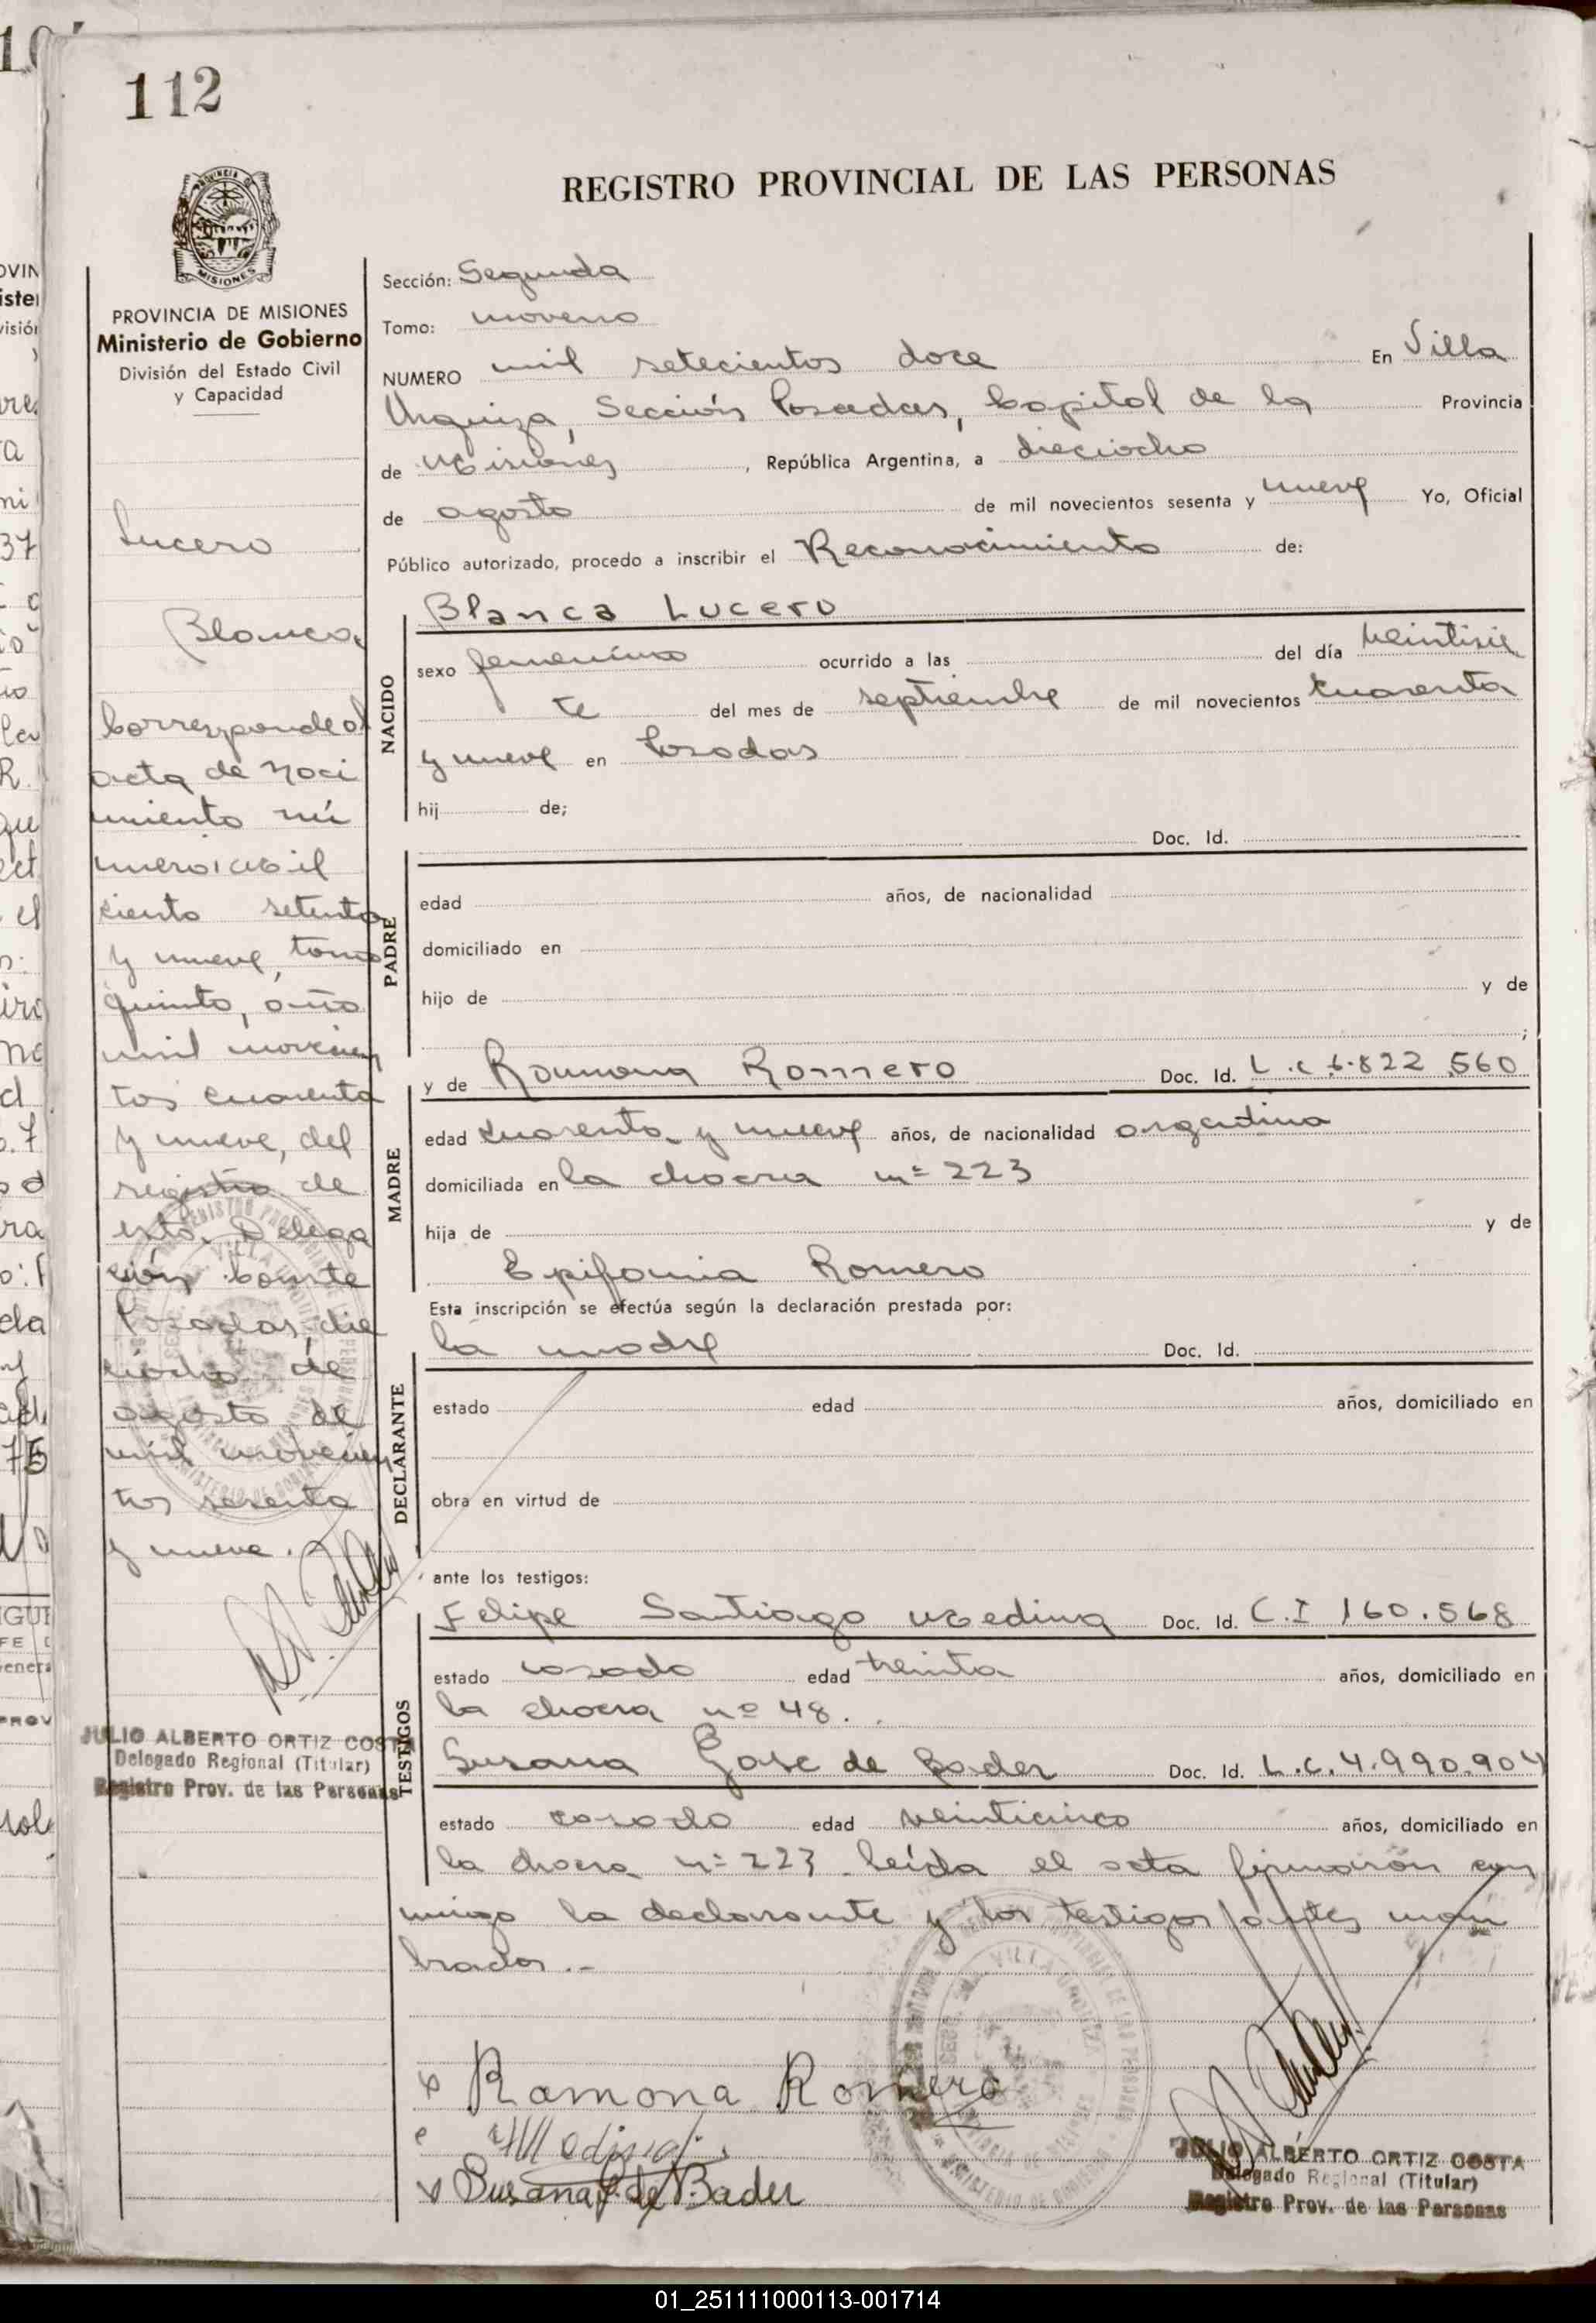 112
REGISTRO PROVINCIAL DE LAS PERSONAS
PROVINCIA DE MISIONES
Ministerio de Gobierno
División del Estado Civil
y Capacidad
Lucero
Blanca
Corresponde al
acta de naci
miento nú
mero: Mil
ciento setenta
y nueve, tomo
quinto, año
mil novecien
tos cuarenta
y nueve, del
registro de
esta Delega
ción. Conste
Posadas, die
ciocho de
agosto de
mil novecien
tos sesenta
y nueve.
JULIO ALBERTO ORTIZ COSTA
Delegado Regional (Titular)
Registro Prov. de las Personas
Sección: Segunda
Tomo: noveno
NUMERO mil setecientos doce En Villa
Urquiza, Sección Posadas, Capital de la Provincia
de Misiones, República Argentina, a dieciocho
de agosto de mil novecientos sesenta y nueve Yo, Oficial
Público autorizado, procedo a inscribir el Reconocimiento de:
NACIDO
Blanca Lucero
sexo femenino ocurrido a las del día veintisie
te del mes de septiembre de mil novecientos cuarenta
y nueve en Posadas
hij de;
Doc. Id.
PADRE
edad años, de nacionalidad
domiciliado en
hijo de y de
;
y de Ramona Romero Doc. Id. L.C 6.822.560
MADRE
edad cuarenta y nueve años, de nacionalidad argentina
domiciliada en la chacra nº 223
hija de y de
Epifania Romero
Esta inscripción se efectúa según la declaración prestada por:
la madre Doc. Id.
DECLARANTE
estado edad años, domiciliado en
obra en virtud de
ante los testigos:
TESTIGOS
Felipe Santiago Medina Doc. Id. C.I 160.568
estado casado edad treinta años, domiciliado en
la chacra nº 48.
Susana de Bader Doc. Id. L.C. 4.990.904
estado casada edad veinticinco años, domiciliado en
la chacra nº 223 leída el acta firmaron con
migo la declarante y los testigos antes nom
brados.-
Ramona Romero
Medina
Susana G. de Bader
JULIO ALBERTO ORTIZ COSTA
Delegado Regional (Titular)
Registro Prov. de las Personas
01_251111000113-001714